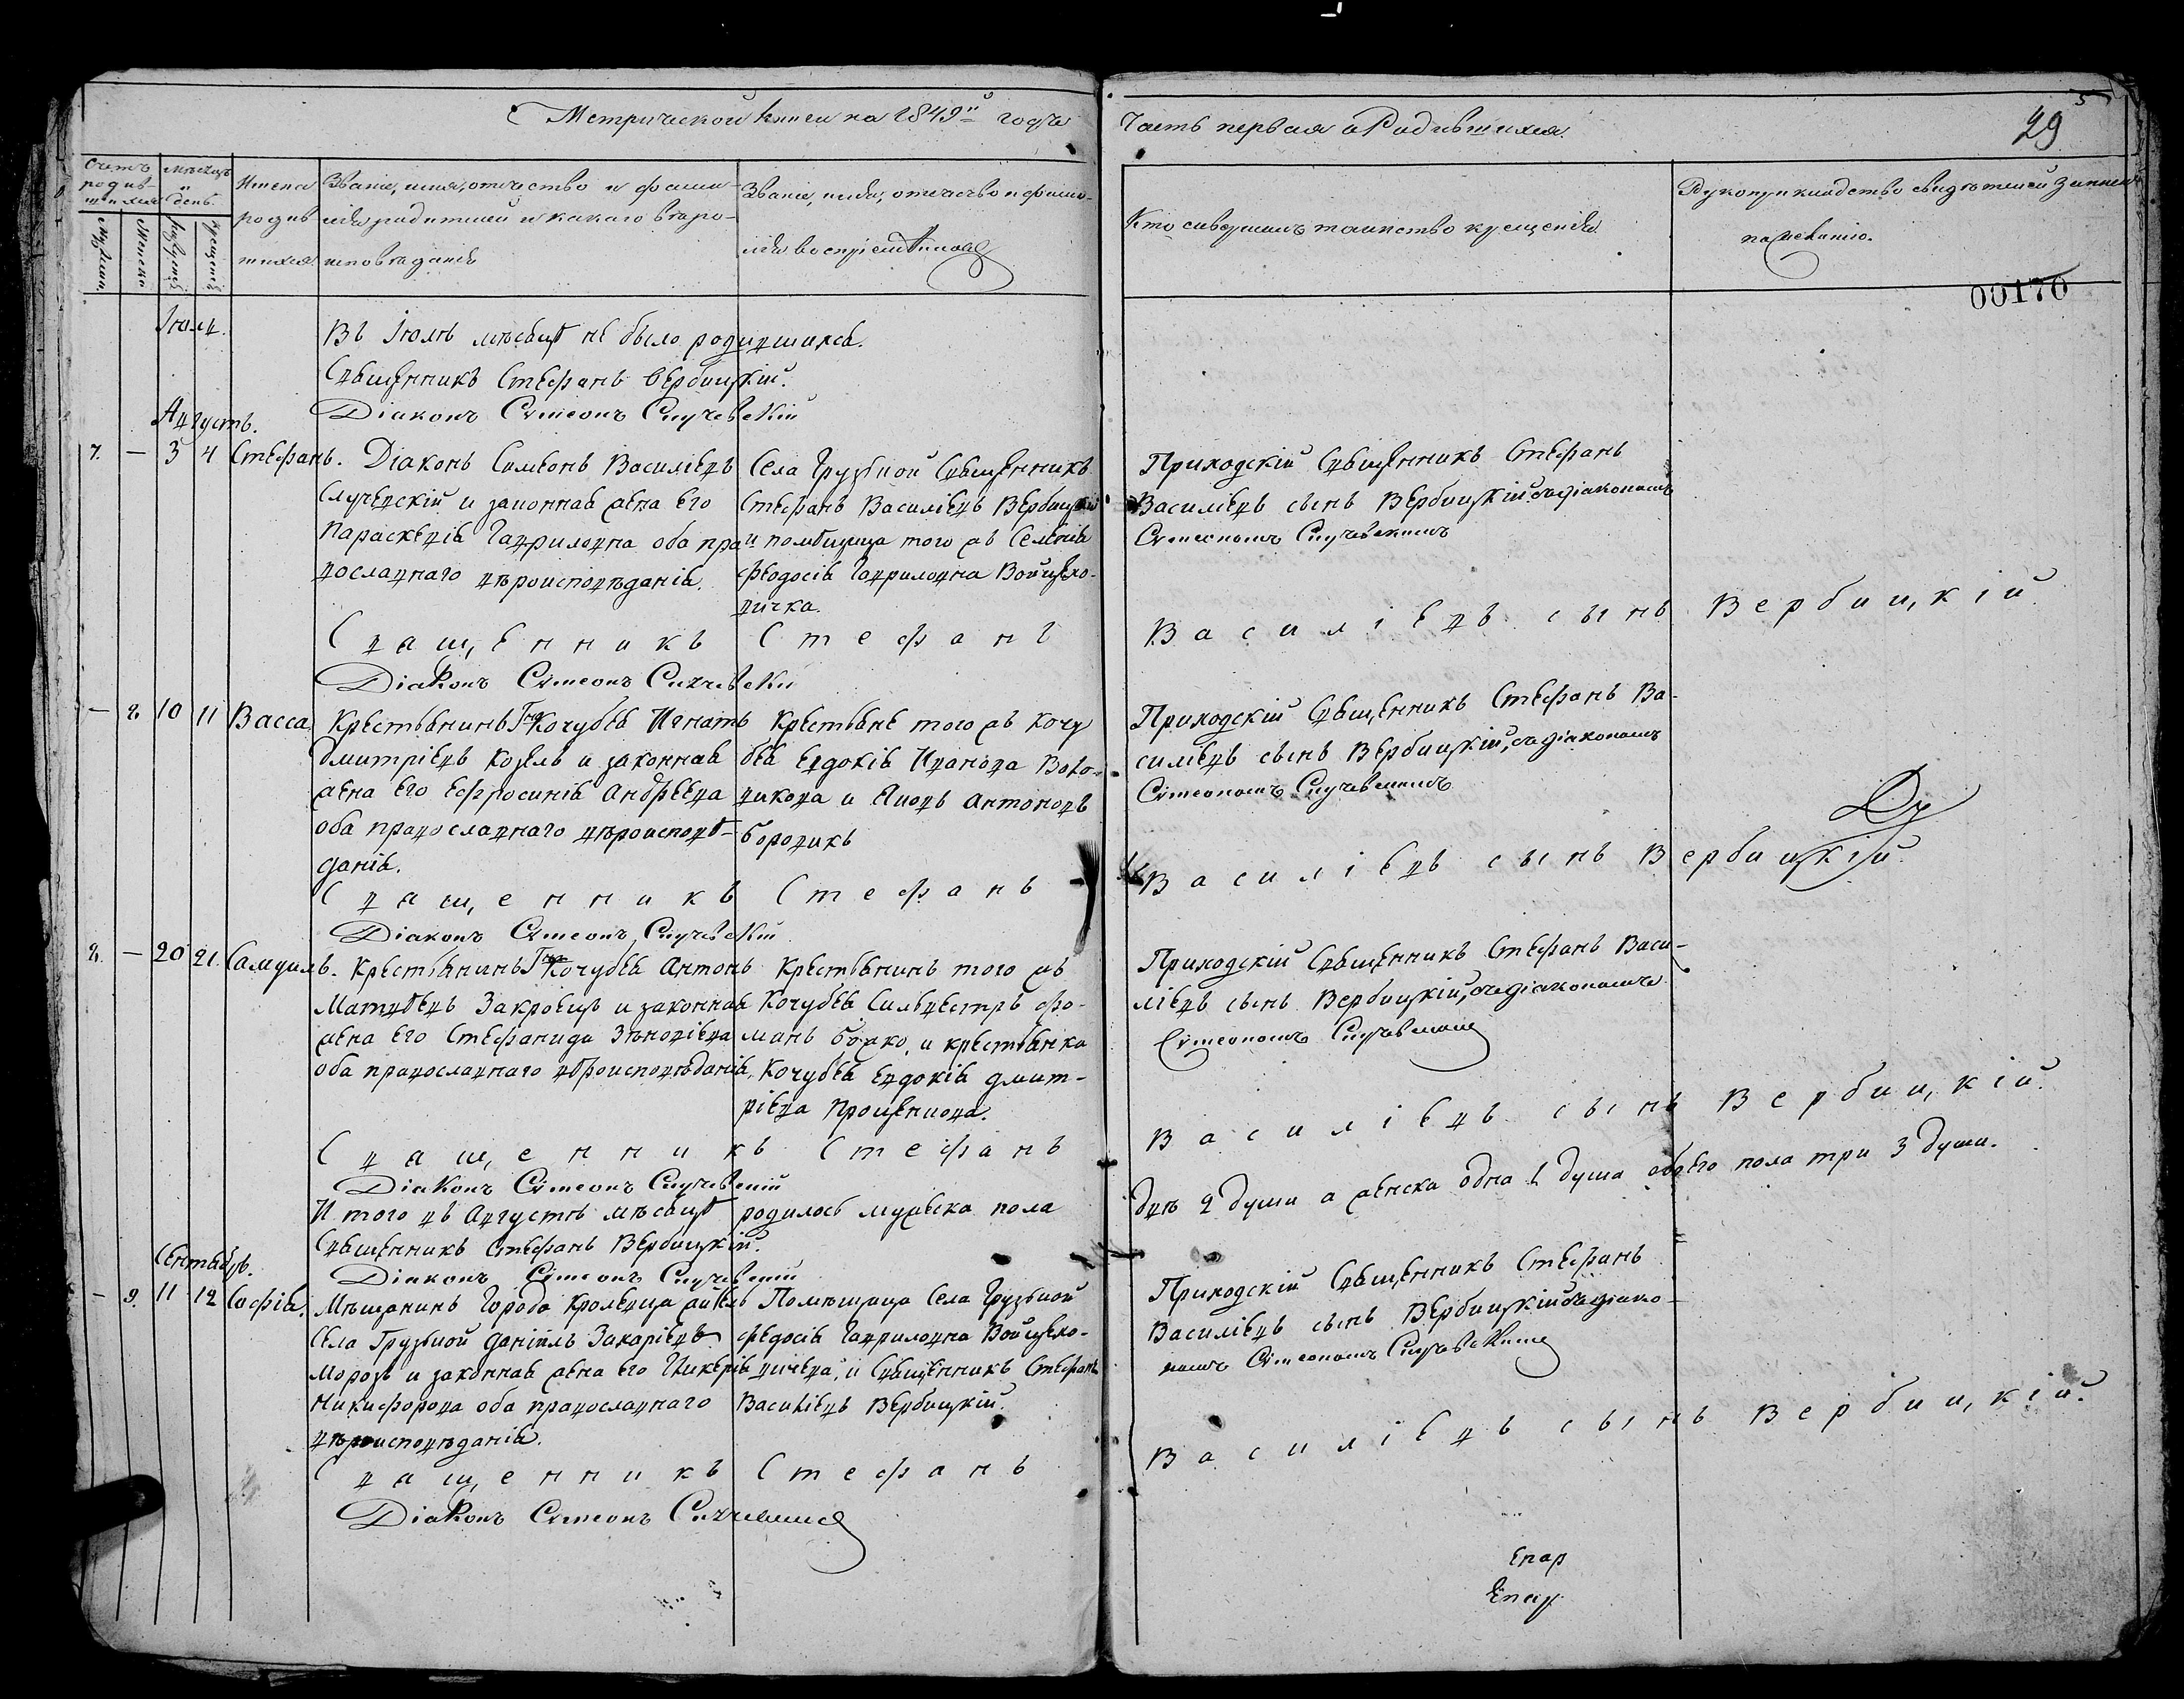 Метрической книги на 1849й годъ
Часть первая о Родившихся
29
5
Счетъ родившихся
Мѣсяцъ и День
Имена родившихся
Званіе, имя, отчество и фамилія родителей и какаго вѣроисповѣданія
Званіе, имя, отчество и фамилія воспріемниковъ
Кто совершалъ таинство крещенія
Рукоприкладство свидѣтелей записи по желанію.
Мужеска
Женска
рожденія
крещенія
00170
Іюль.
Въ Іюлѣ мѣсяцѣ не было родившихся.
Священникъ Стефанъ Вербицкій.
Діаконъ Симеонъ Случевскій
Августъ.
7. — 3 4 Стефанъ.
Діаконъ Симеонъ Василіевъ
Случевскій и законная жена его
Параскевія Гавриловна оба пра
вославнаго вѣроисповѣданія.
Села Грузкой Священникъ
Стефанъ Василіевъ Вербицкій
и помѣщица того жъ Селенія
Феодосія Гавриловна Войцехо-
вичка.
Приходскій Священникъ Стефанъ
Василіевъ сынъ Вербицкій съ діакономъ
Симеономъ Случевскимъ
Священникъ Стефанъ Василіевъ сынъ Вербицкій.
Діаконъ Симеонъ Случевскій
— 2. 10 11 Васса.
Крестьянинъ Гна Кочубея Игнатъ
Дмитріевъ Козелъ и законная
жена его Ефросинія Андреева
оба православнаго вѣроисповѣ-
данія.
Крестьяне того жъ Кочу
бея Евдокія Иванова Воло-
викова и Яковъ Антоновъ
Боровикъ
Приходскій Священникъ Стефанъ Ва-
силіевъ сынъ Вербицкій, съ діакономъ
Симеономъ Случевскимъ
Священникъ Стефанъ Василіевъ сынъ Вербицкій.
Діаконъ Симеонъ Случевскій
— 20 21. Самуилъ.
Крестьянинъ Гна Кочубея Антонъ
Матвѣевъ Закроецъ и законная
жена его Стефанида Зѣновіева
оба православнаго вѣроисповѣданія.
Крестьянинъ того жъ
Кочубея Сильвестръ Фо-
манъ Божко, и крестьянка
Кочубея Евдокія Дмит-
ріева Проценкова.
Приходскій Священникъ Стефанъ Васи-
ліевъ сынъ Вербицкій, съ діакономъ
Симеономъ Случевскимъ
Священникъ Стефанъ Василіевъ сынъ Вербицкій.
Діаконъ Симеонъ Случевскій
И того въ Августѣ мѣсяцѣ родилось мужеска пола двѣ 2 души а женска одна 1 душа обоего пола три 3 души.
Священникъ Стефанъ Вербицкій.
Діаконъ Симеонъ Случевскій
Сентябрь.
— 11 12 Софія.
Мѣщанинъ Города Кролевца житель
Села Грузкой Даніилъ Захаріевъ
Морозъ и законная жена его Гликерія
Никифорова оба православнаго
вѣроисповѣданія.
Помѣщица Села Грузкой
Федосія Гавриловна Войцехо-
вичева, и Священникъ Стефанъ
Василіевъ Вербицкій.
Приходскій Священникъ Стефанъ
Василіевъ сынъ Вербицкій съ діако-
номъ Симеономъ Случевскимъ
Священникъ Стефанъ Василіевъ сынъ Вербицкій.
Діаконъ Симеонъ Случевскій
Епар
Епар